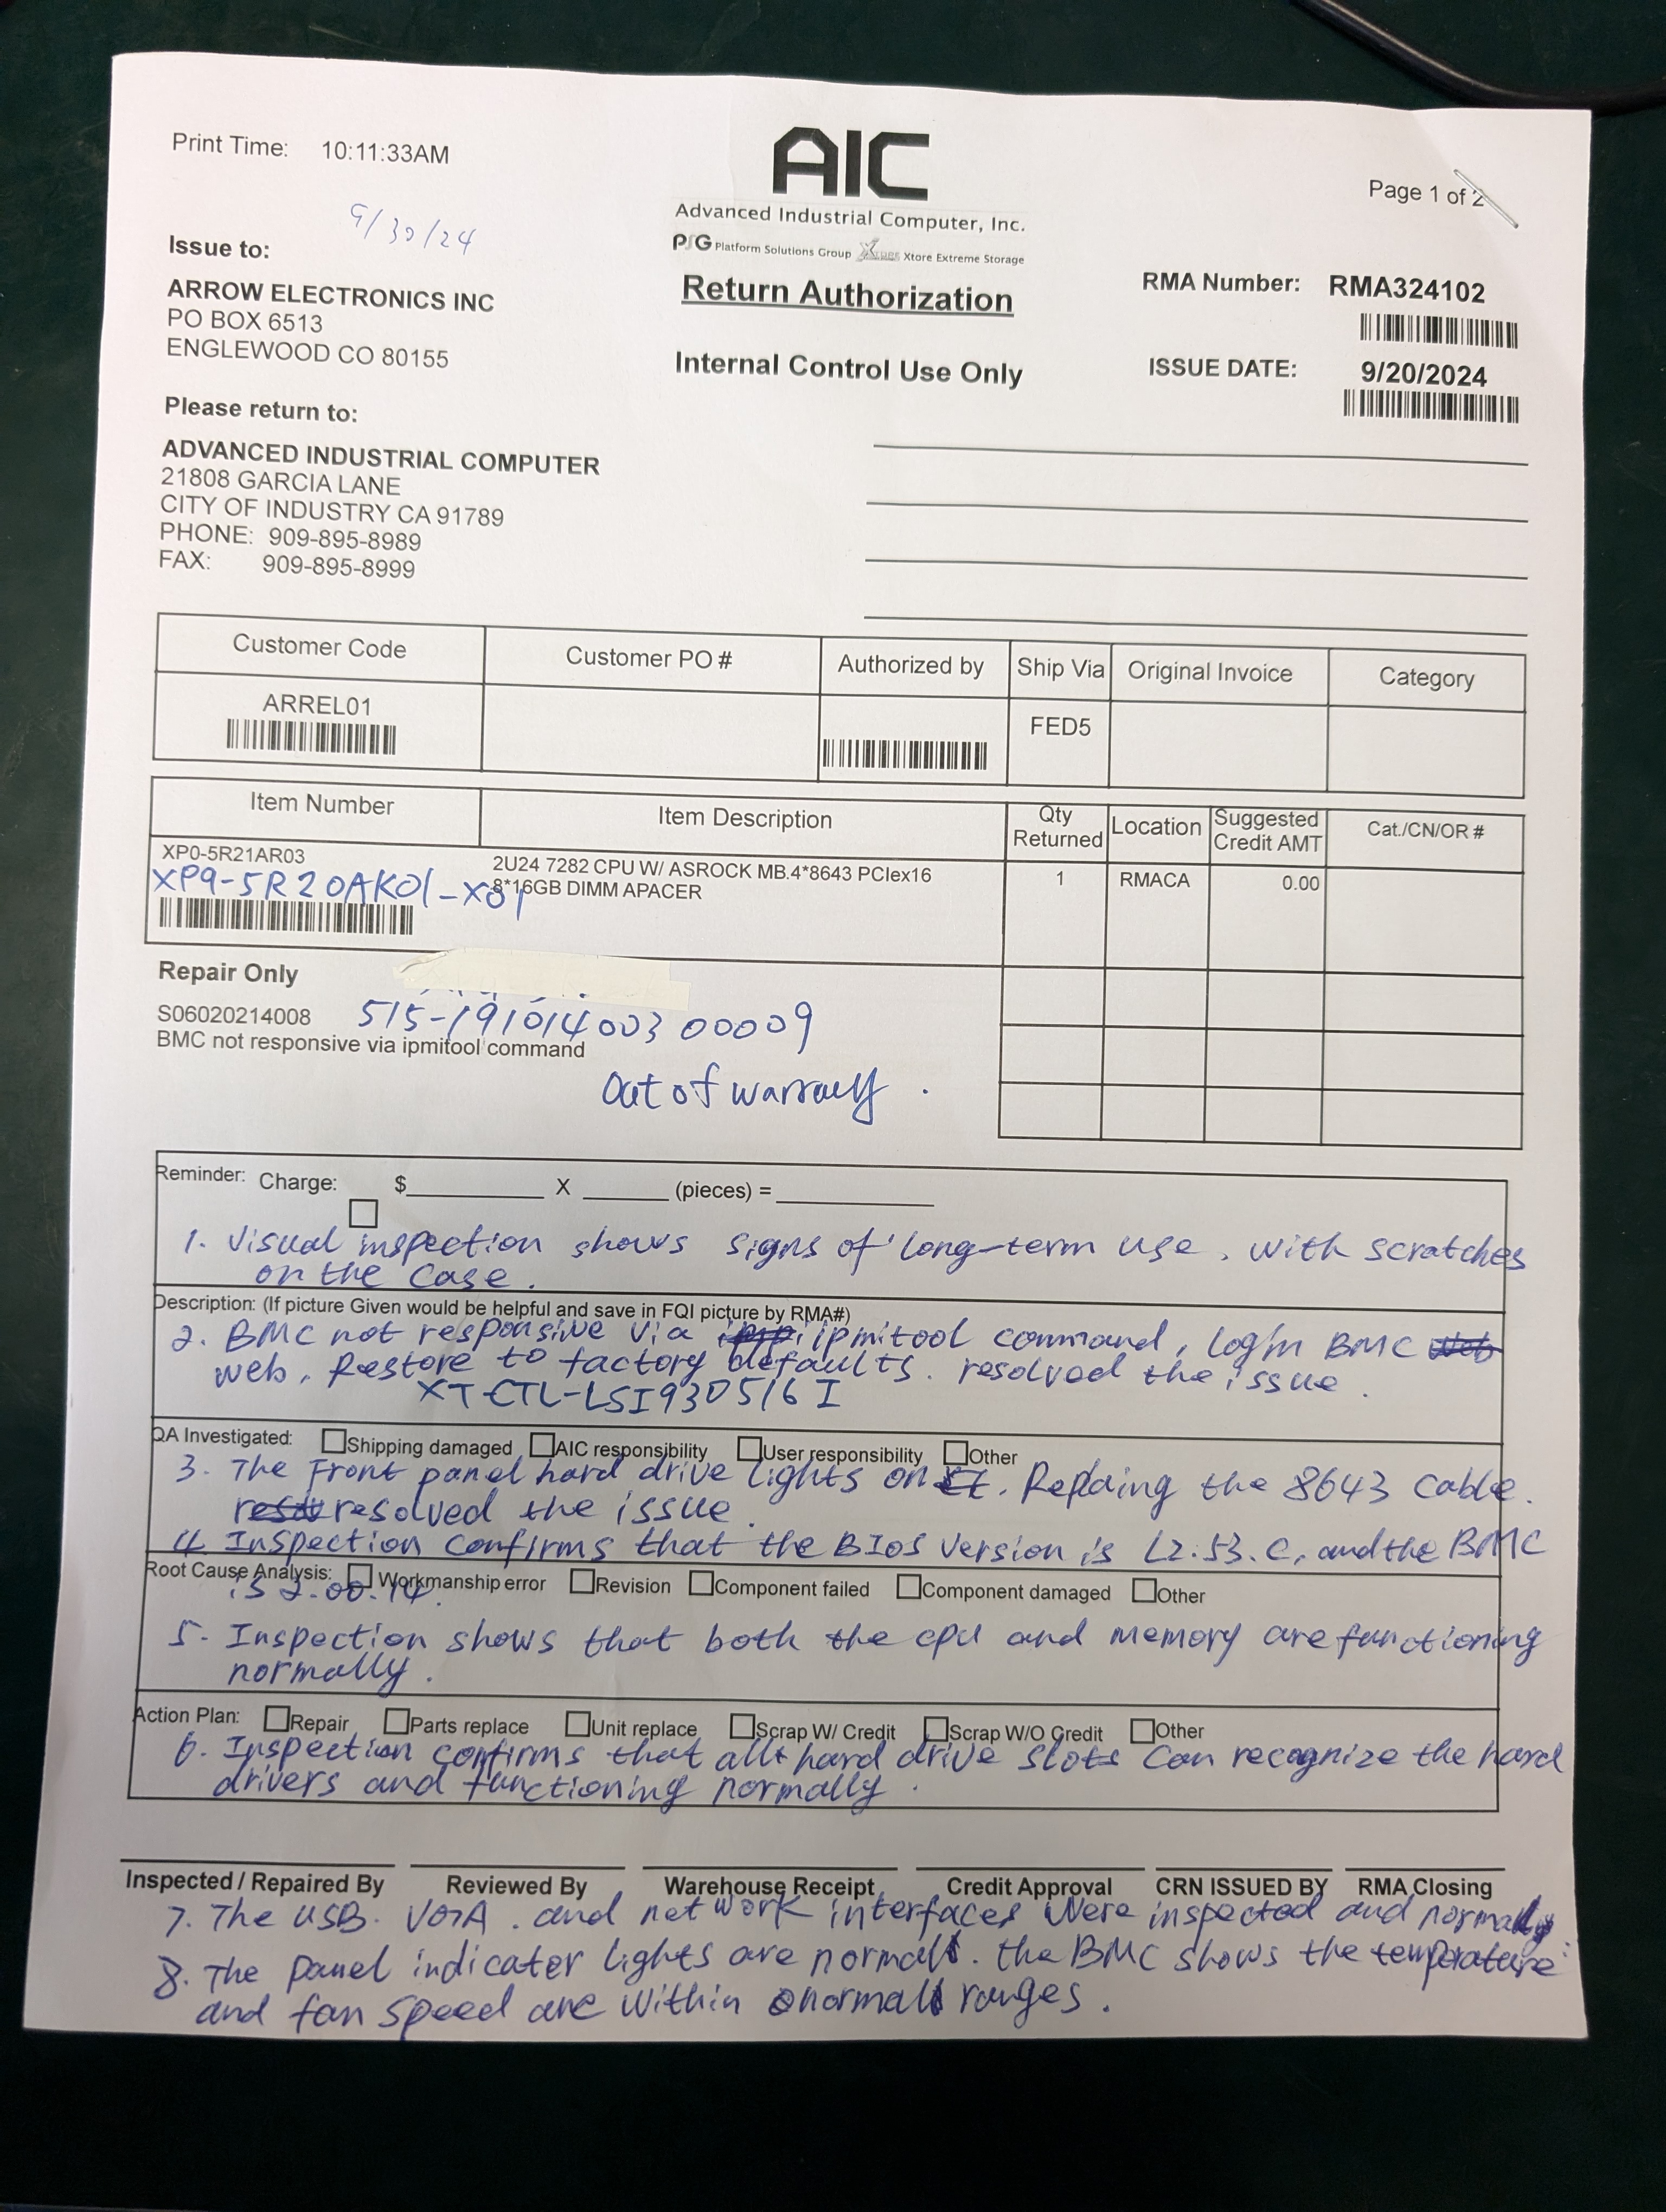 Print Time: 10:11:33AM
AIC
Advanced Industrial Computer, Inc.
PSG Platform Solutions Group Xtore Xtore Extreme Storage
Page 1 of 2
9/30/24
Return Authorization
Internal Control Use Only
RMA Number: RMA324102
ISSUE DATE: 9/20/2024
Issue to:
ARROW ELECTRONICS INC
PO BOX 6513
ENGLEWOOD CO 80155
Please return to:
ADVANCED INDUSTRIAL COMPUTER
21808 GARCIA LANE
CITY OF INDUSTRY CA 91789
PHONE: 909-895-8989
FAX: 909-895-8999
Customer Code Customer PO # Authorized by Ship Via Original Invoice Category
ARREL01 FED5
Item Number Item Description Qty Returned Location Suggested Credit AMT Cat./CN/OR #
XP0-5R21AR03 2U24 7282 CPU W/ ASROCK MB.4*8643 PCIex16 1 RMACA 0.00
XP9-5R20AK01-X01 8*16GB DIMM APACER
Repair Only
S06020214008 515-191014003 00009
BMC not responsive via ipmitool command
Out of warranty .
Reminder: Charge: $ X (pieces) =
1. Visual inspection shows signs of long-term use, with scratches
on the case.
Description: (If picture Given would be helpful and save in FQI picture by RMA#)
2. BMC not responsive via ipmitool command, login BMC web
web, Restore to factory defaults. resolved the issue.
XT-CTL-LSI930516I
QA Investigated: Shipping damaged AIC responsibility User responsibility Other
3. The Front panel hard drive lights on. Replacing the 8643 cable.
resolved the issue.
4. Inspection confirms that the BIOS version is L2.53.C, and the BMC
Root Cause Analysis: Workmanship error Revision Component failed Component damaged Other
is 2.00.14.
5. Inspection shows that both the cpu and memory are functioning
normally.
Action Plan: Repair Parts replace Unit replace Scrap W/ Credit Scrap W/O Credit Other
6. Inspection confirms that all hard drive slots can recognize the hard
drivers and functioning normally.
Inspected / Repaired By Reviewed By Warehouse Receipt Credit Approval CRN ISSUED BY RMA Closing
7. The USB. VGA. and network interfaces were inspected and normally.
8. The panel indicator lights are normal. the BMC shows the temperature
and fan speed are within normal ranges.